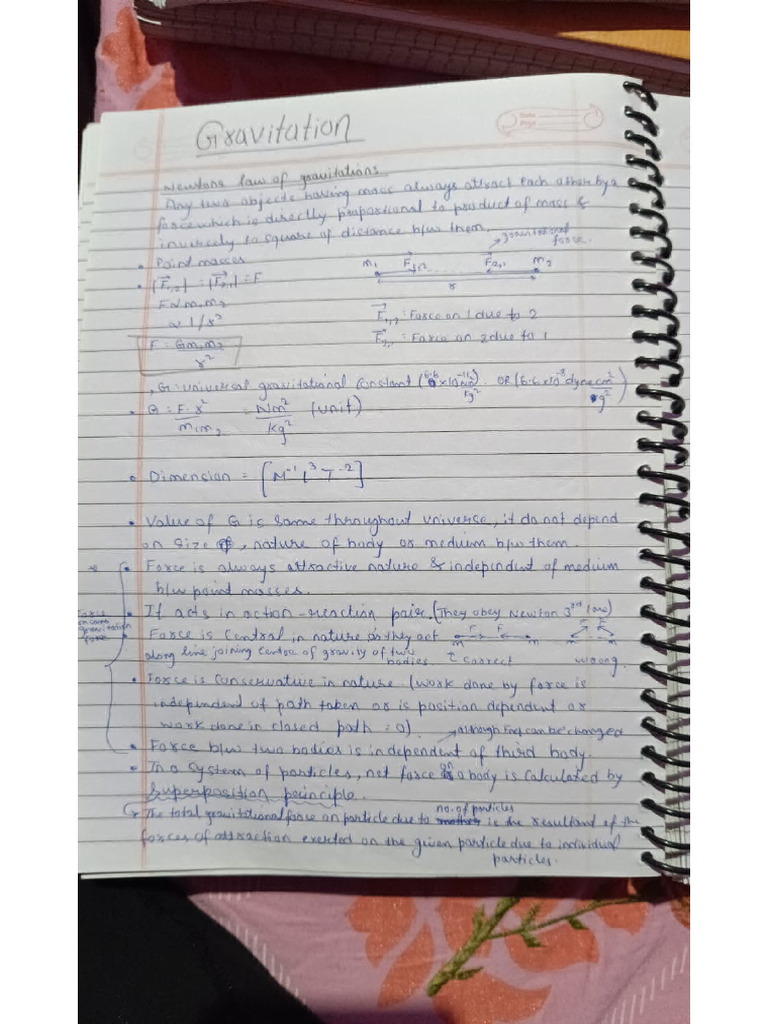 Gravitation
Newtons law of gravitations
Any two objects having mass always attract each other by a
force which is directly proportional to product of mass &
inversely to square of distance b/w them.
gravitational force.
• Point masses
m₁ F⃗₁,₂ F⃗₂,₁ m₂
r
• |F⃗₁,₂| = |F⃗₂,₁| = F
F ∝ m₁m₂
∝ 1/r²
F⃗₁,₂ : Force on 1 due to 2
F⃗₂,₁ : Force on 2 due to 1
F = Gm₁m₂/r²
, G: universal gravitational constant (6.6 ×10⁻¹¹ Nm²/kg²) OR (6.6 ×10⁻³ dyne cm²/g²)
• G = F·r²/m₁m₂ = Nm²/kg² (unit)
• Dimension = [M⁻¹L³T⁻²]
• Value of G is same throughout universe, it do not depend
on size of, nature of body or medium b/w them.
• Force is always attractive nature & independent of medium
b/w point masses.
• It acts in action-reaction pair. (They obey Newton 3rd law)
Force
gravitation
force
• Force is Central in nature as they act
F F
m m
along line joining centre of gravity of two
bodies
correct
wrong.
• Force is conservative in nature (work done by force is
independent of path taken or is position dependent or
work done in closed path = 0).
although Fnet can be changed
• Force b/w two bodies is independent of third body.
• In a system of particles, net force on a body is calculated by
superposition principle.
The total gravitational force on particle due to no. of particles is the resultant of the
forces of attraction exerted on the given particle due to individual
particles.